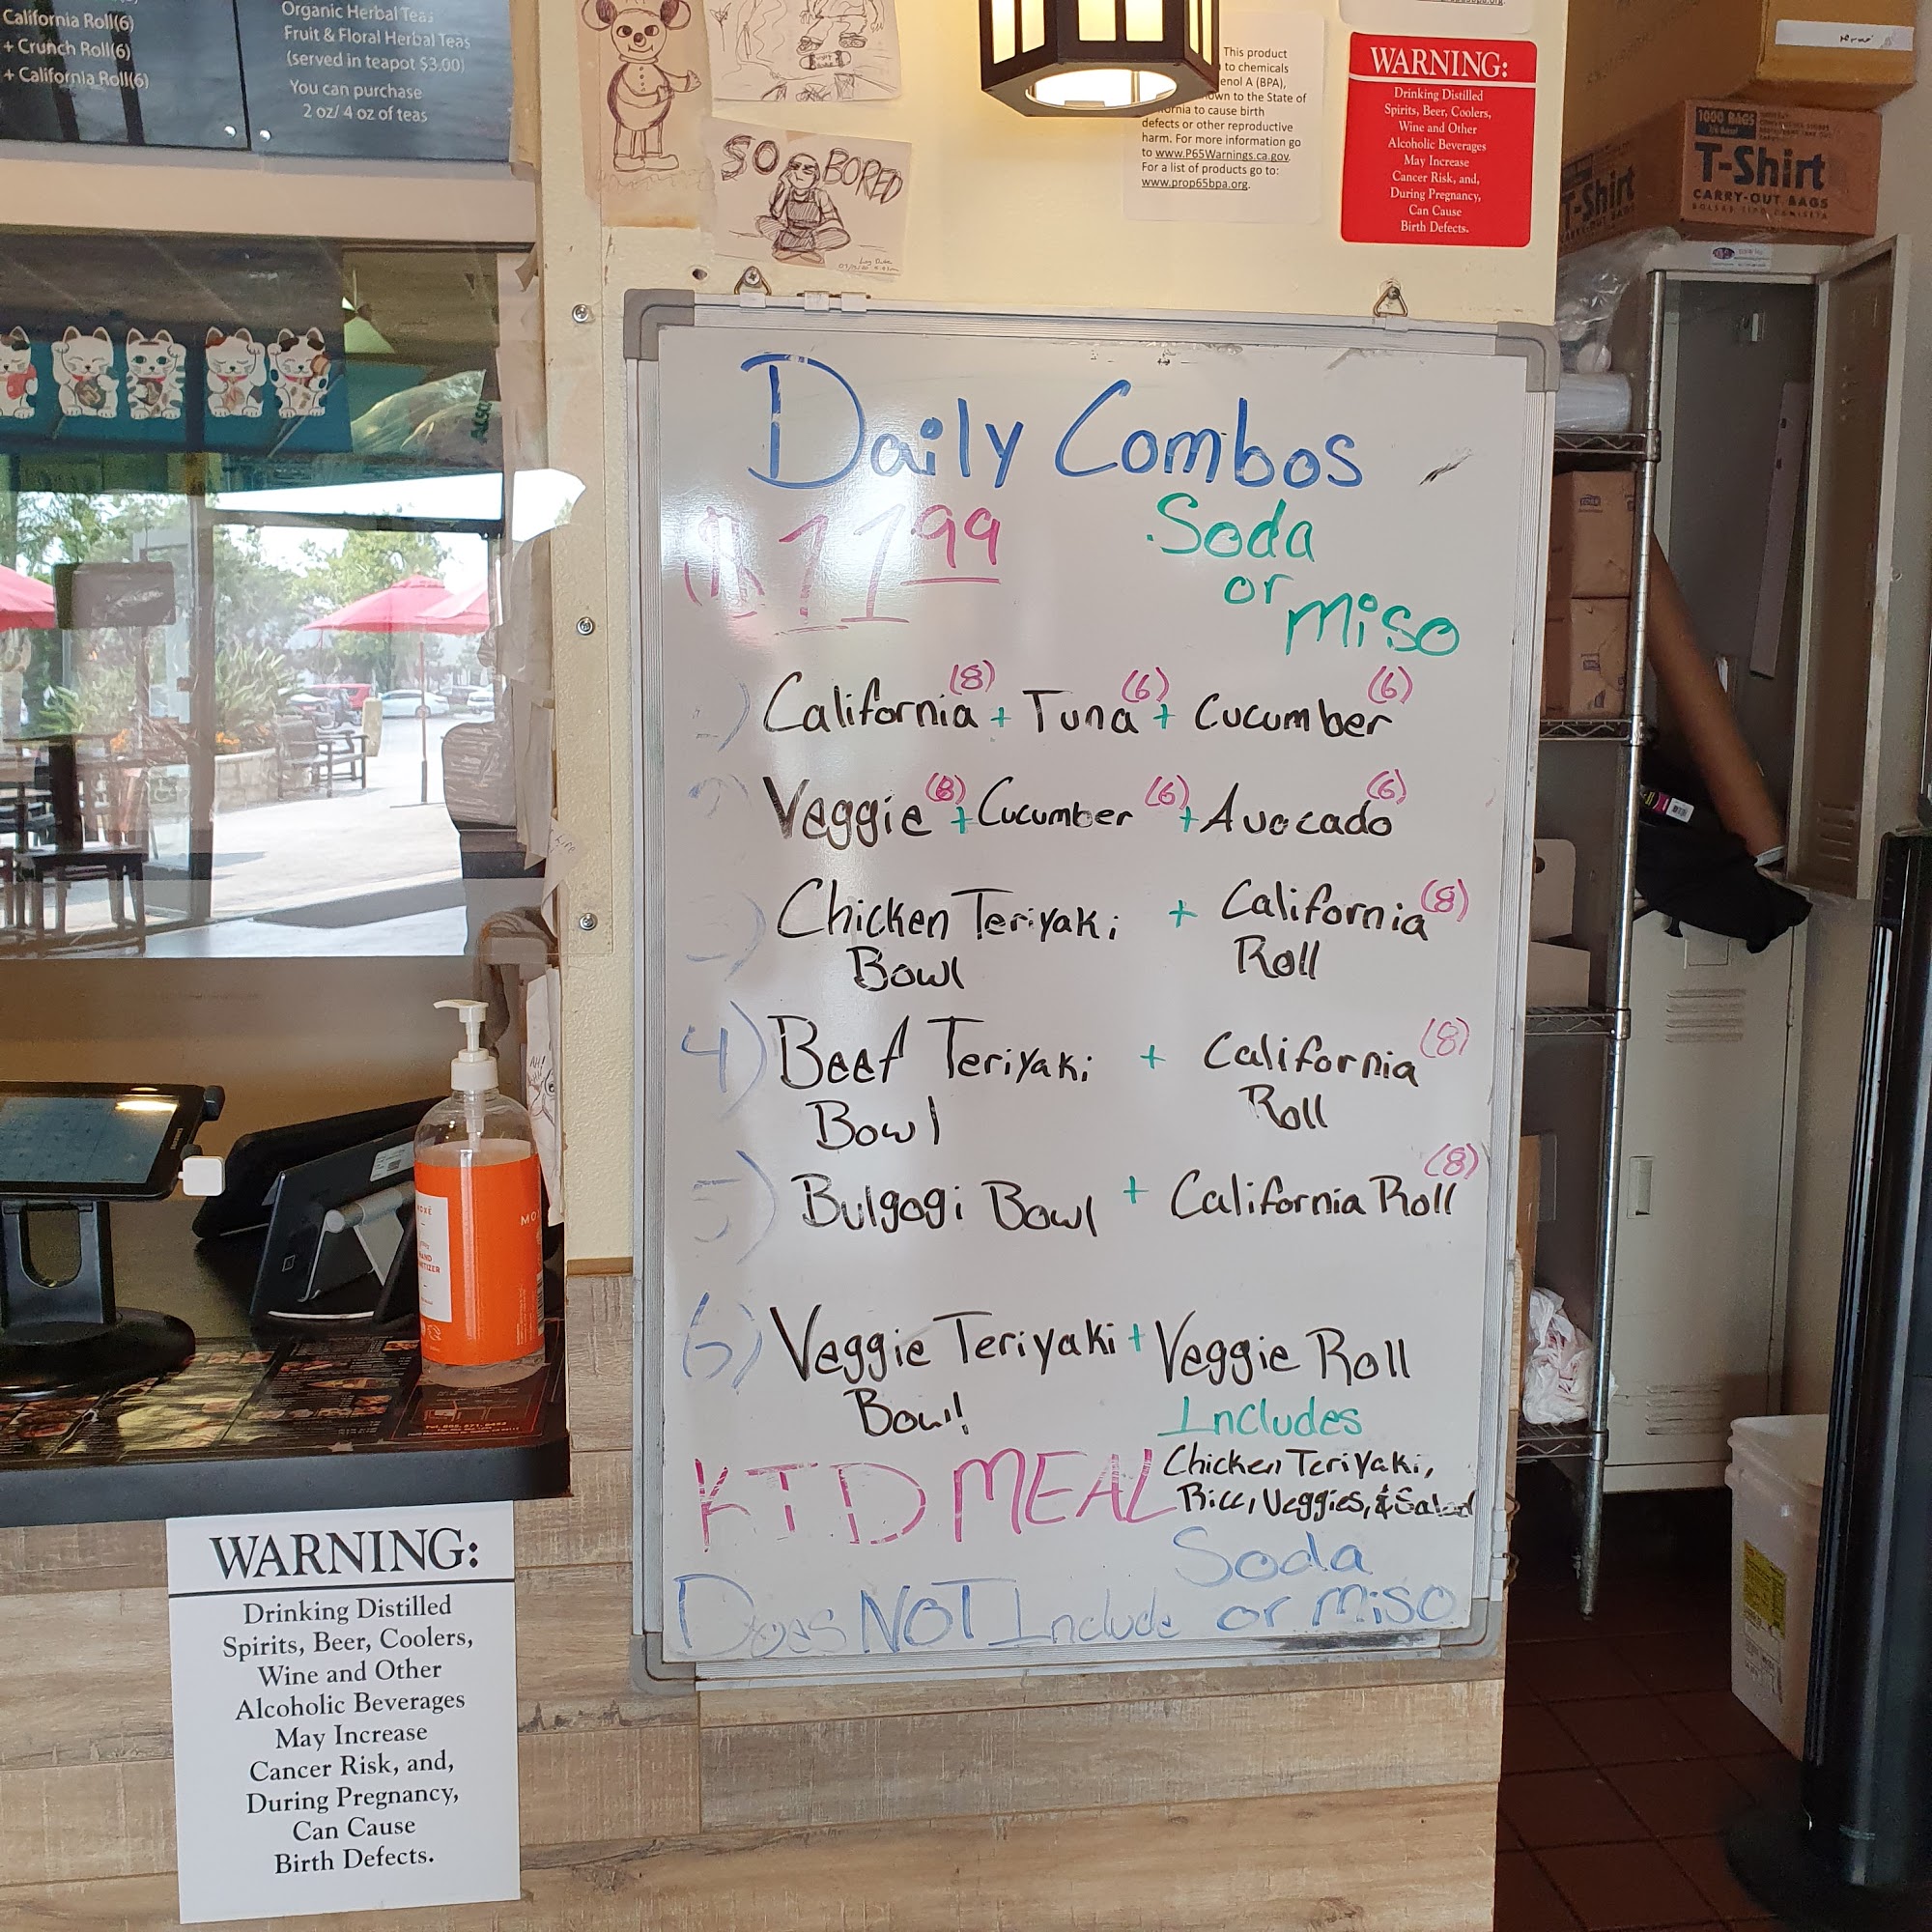 California Roll(6)
+ Crunch Roll(6)
+ California Roll(6)
Organic Herbal Teas
Fruit & Floral Herbal Teas
(served in teapot $3.00)
You can purchase
2 oz/ 4 oz of teas
SO BORED
This product
to chemicals
enol A (BPA),
own to the State of
to cause birth
defects or other reproductive
harm. For more information go
to www.P65Warnings.ca.gov.
For a list of products go to:
www.prop65bpa.org.
WARNING:
Drinking Distilled
Spirits, Beer, Coolers,
Wine and Other
Alcoholic Beverages
May Increase
Cancer Risk, and,
During Pregnancy,
Can Cause
Birth Defects.
1000 BAGS
T-Shirt
CARRY-OUT BAGS
T-Shirt
Daily Combos
$11.99
Soda
or
miso
California (8) + Tuna (6) + Cucumber (6)
Veggie (8) + Cucumber (6) + Avocado (6)
Chicken Teriyaki + California (8)
Bowl Roll
4) Beef Teriyaki + California (8)
Bowl Roll
5) Bulgogi Bowl + California Roll (8)
6) Veggie Teriyaki + Veggie Roll
Bowl
Includes
KID MEAL
Chicken Teriyaki,
Rice, Veggies, & Salad
Does NOT Include Soda
or miso
WARNING:
Drinking Distilled
Spirits, Beer, Coolers,
Wine and Other
Alcoholic Beverages
May Increase
Cancer Risk, and,
During Pregnancy,
Can Cause
Birth Defects.